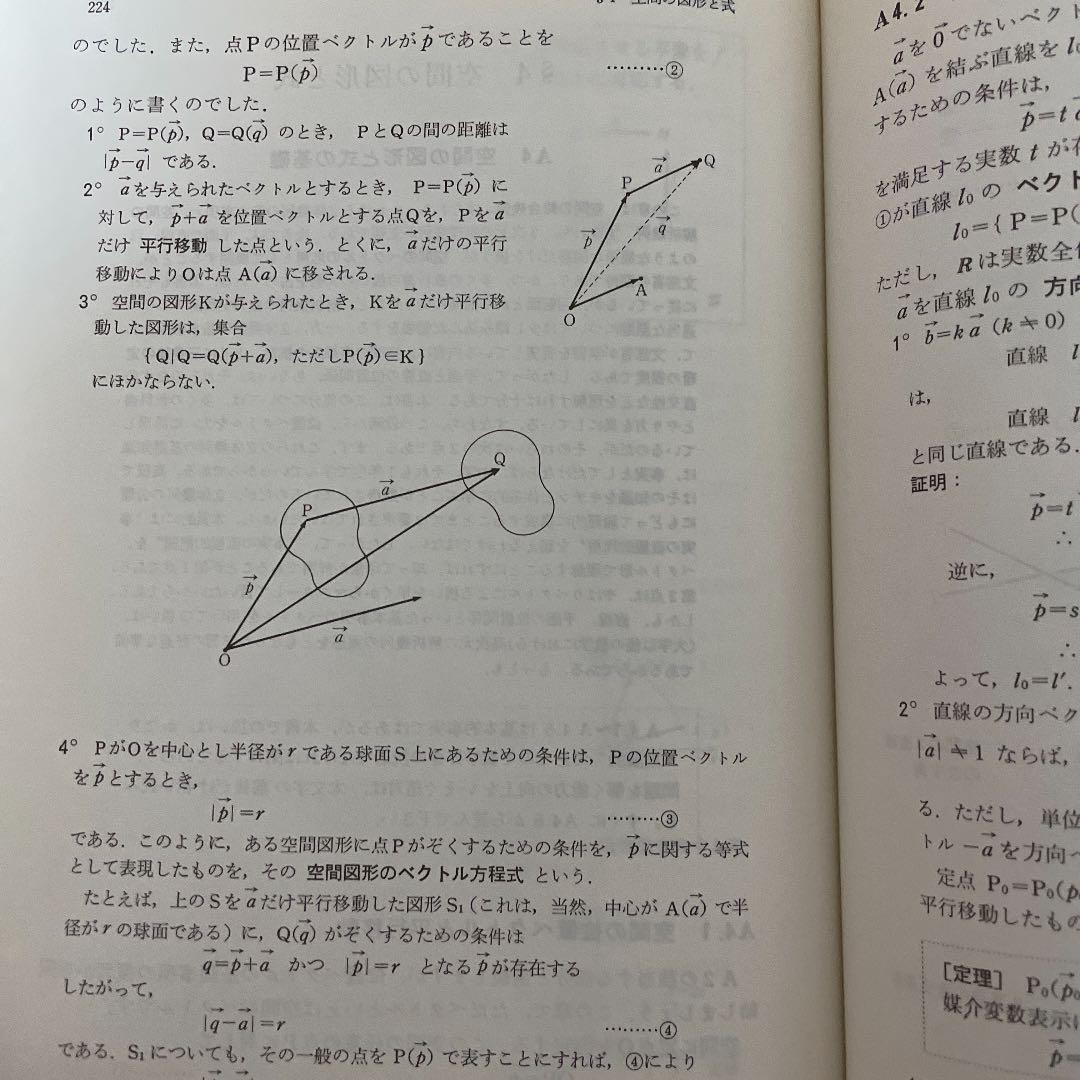 224
空間の図形と式
のでした．また，点Pの位置ベクトルが p→ であることを
P=P(p→) ………②
のように書くのでした．
1° P=P(p→)，Q=Q(q→) のとき， PとQの間の距離は
|p→−q→| である．
2° a→を与えられたベクトルとするとき， P=P(p→) に
対して，p→+a→ を位置ベクトルとする点Qを，Pをa→
だけ 平行移動 した点という．とくに，a→だけの平行
移動によりOは点 A(a→) に移される．
3° 空間の図形Kが与えられたとき，Kをa→だけ平行移
動した図形は，集合
{Q|Q=Q(p→+a→)，ただしP(p→)∈K}
にほかならない．
a→
Q
P
p→
q→
A
O
Q
a→
P
p→
a→
O
4° PがOを中心とし半径がrである球面S上にあるための条件は，Pの位置ベクトル
をp→とするとき，
|p→|=r ………③
である．このように，ある空間図形に点Pがぞくするための条件を，p→に関する等式
として表現したものを，その 空間図形のベクトル方程式 という．
たとえば，上のSをa→だけ平行移動した図形S₁(これは，当然，中心が A(a→) で半
径がrの球面である)に，Q(q→) がぞくするための条件は
q→=p→+a→ かつ |p→|=r となるp→が存在する
したがって，
|q→−a→|=r ………④
である．S₁についても，その一般の点を P(p→) で表すことにすれば，④により
A4.2
a→を0→でないベクト
A(a→) を結ぶ直線を l₀
するための条件は，
p→=t
を満足する実数 t が存
①が直線 l₀ の ベクト
l₀={P=P(
ただし，Rは実数全
a→を直線 l₀ の 方向
1° b→=ka→ (k≠0)
直線 l
は，
直線 l
と同じ直線である．
証明：
p→=t
∴
逆に，
p→=s
∴
よって，l₀=l′．
2° 直線の方向ベク
|a→|≠1 ならば，
る．ただし，単位
トル −a→を方向ベ
定点 P₀=P₀(p
平行移動したもの
[定理] P₀(p→₀
媒介変数表示は
p→=